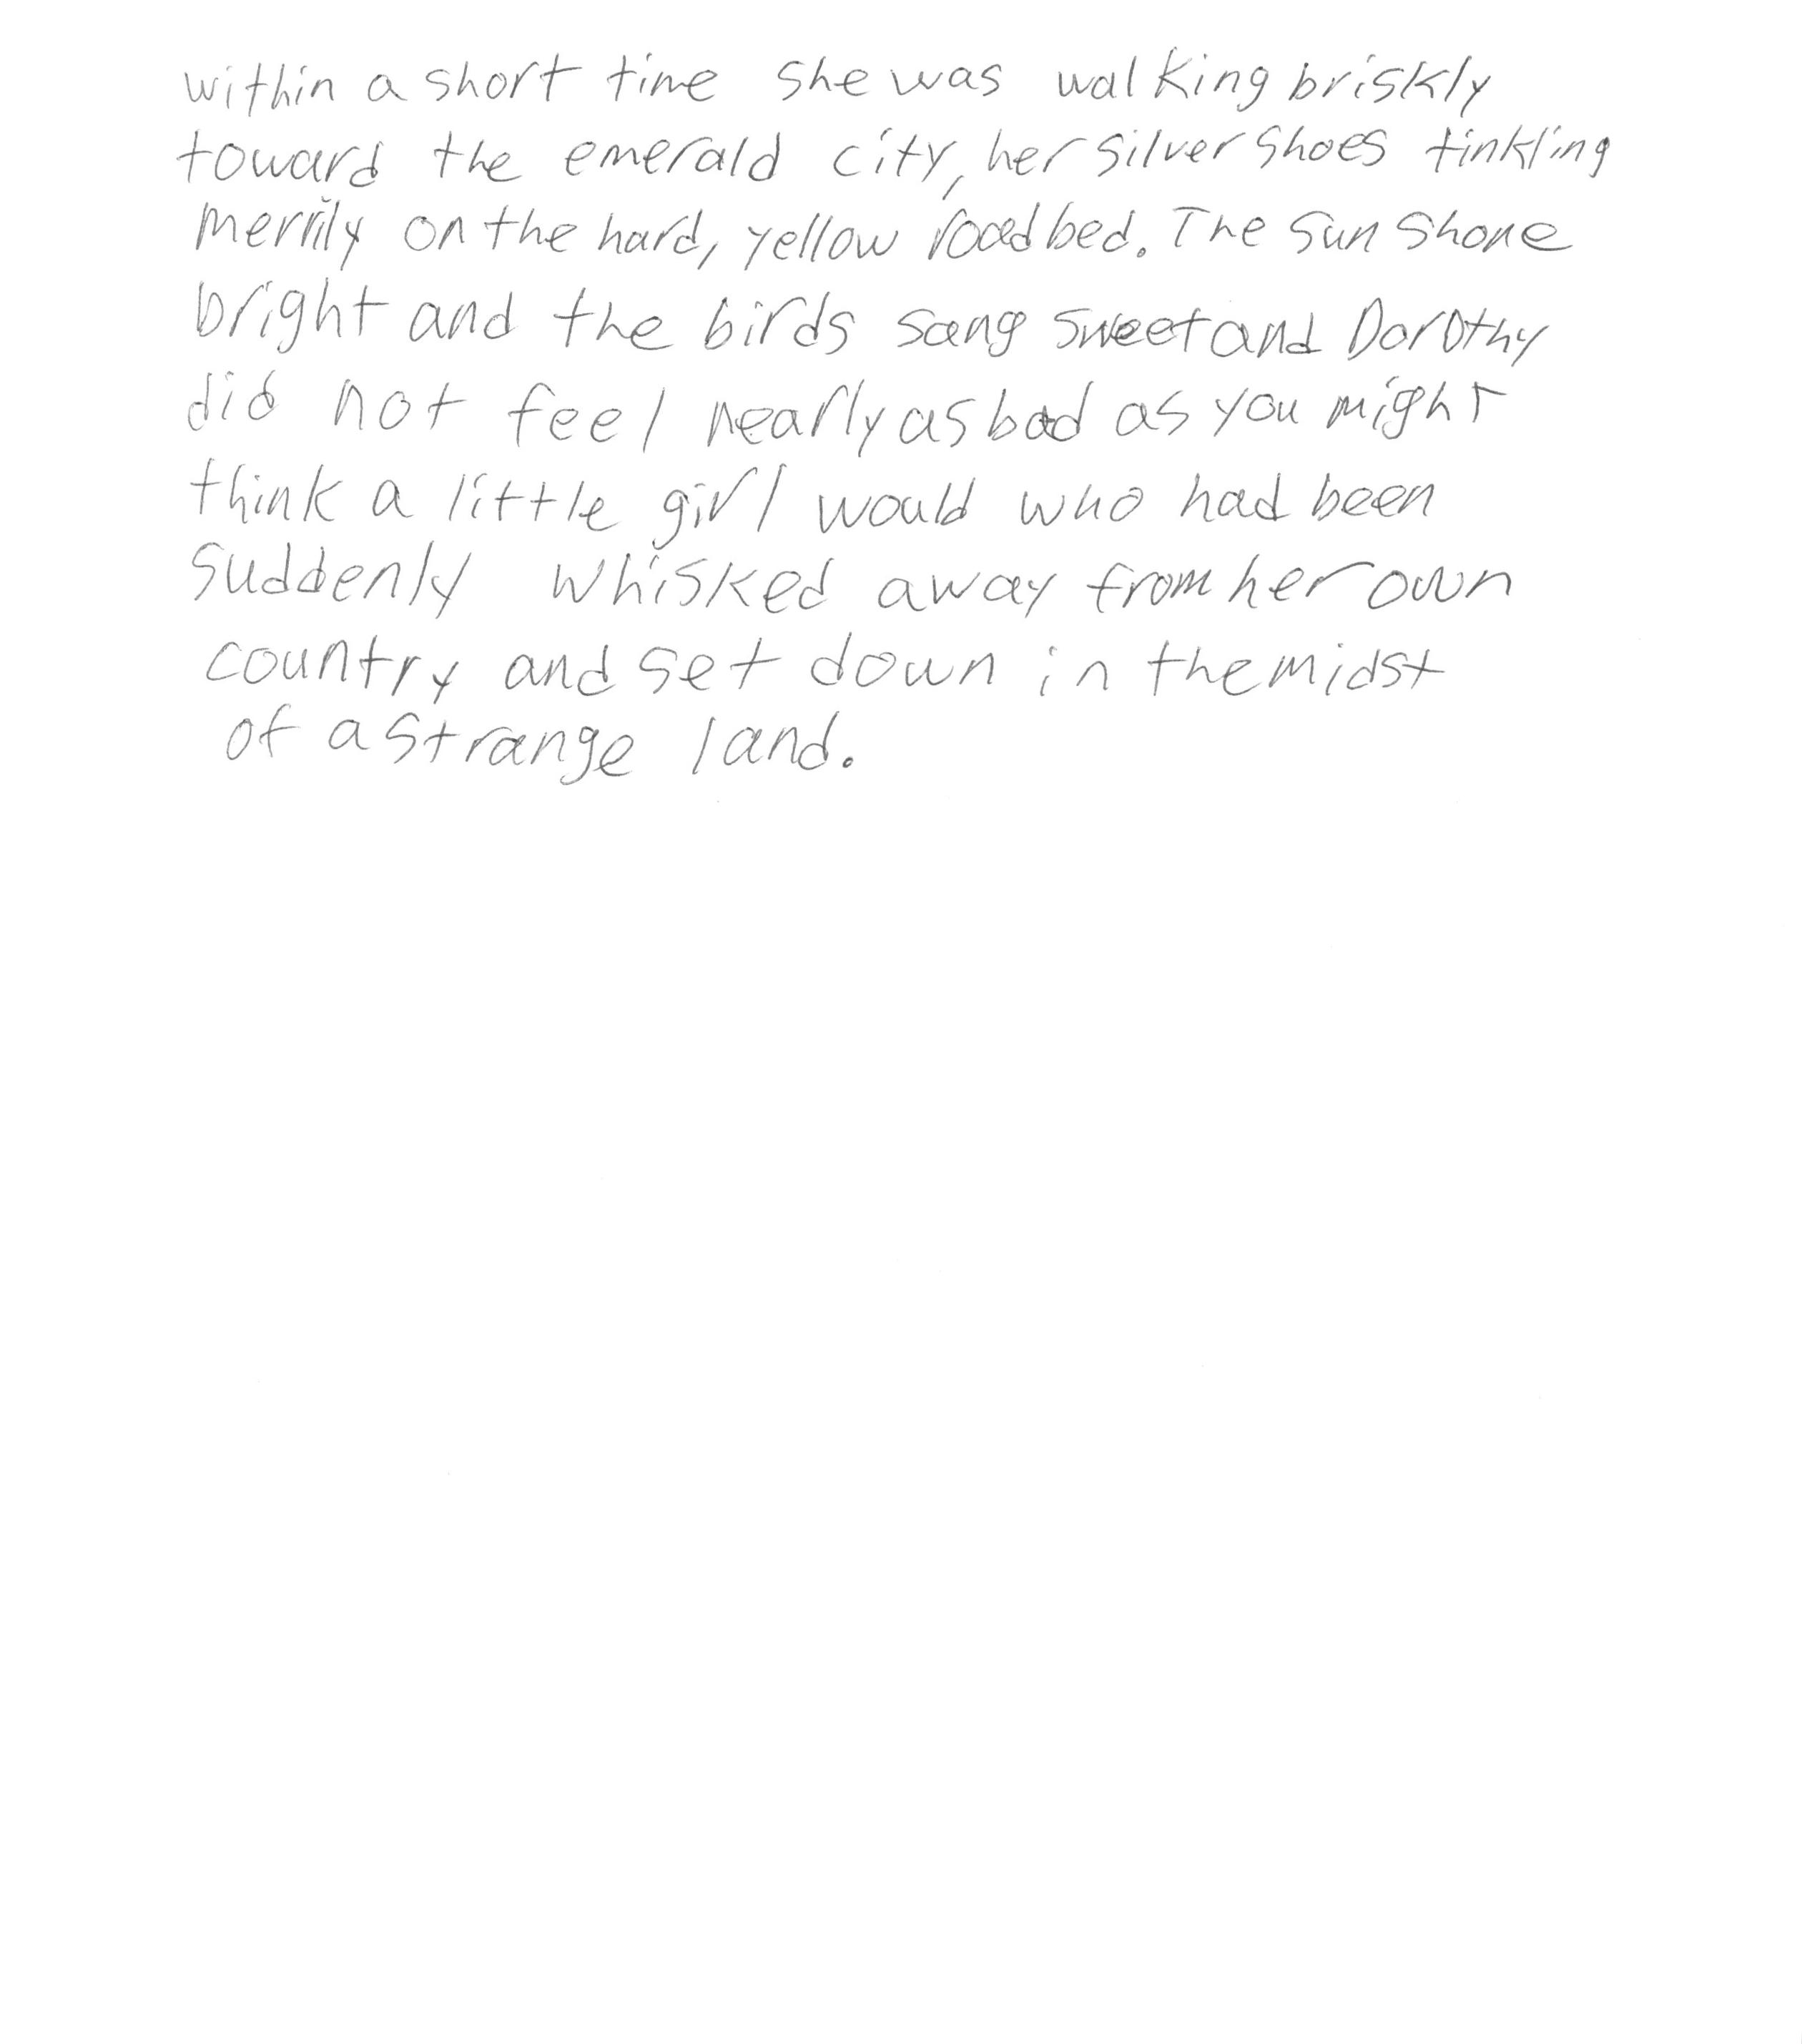 within a short time she was walking briskly
toward the emerald city, her silver shoes tinkling
merrily on the hard, yellow roadbed. The sun shone
bright and the birds sang sweet and Dorothy
did not feel nearly as bad as you might
think a little girl would who had been
suddenly whisked away from her own
country and set down in the midst
of a strange land.